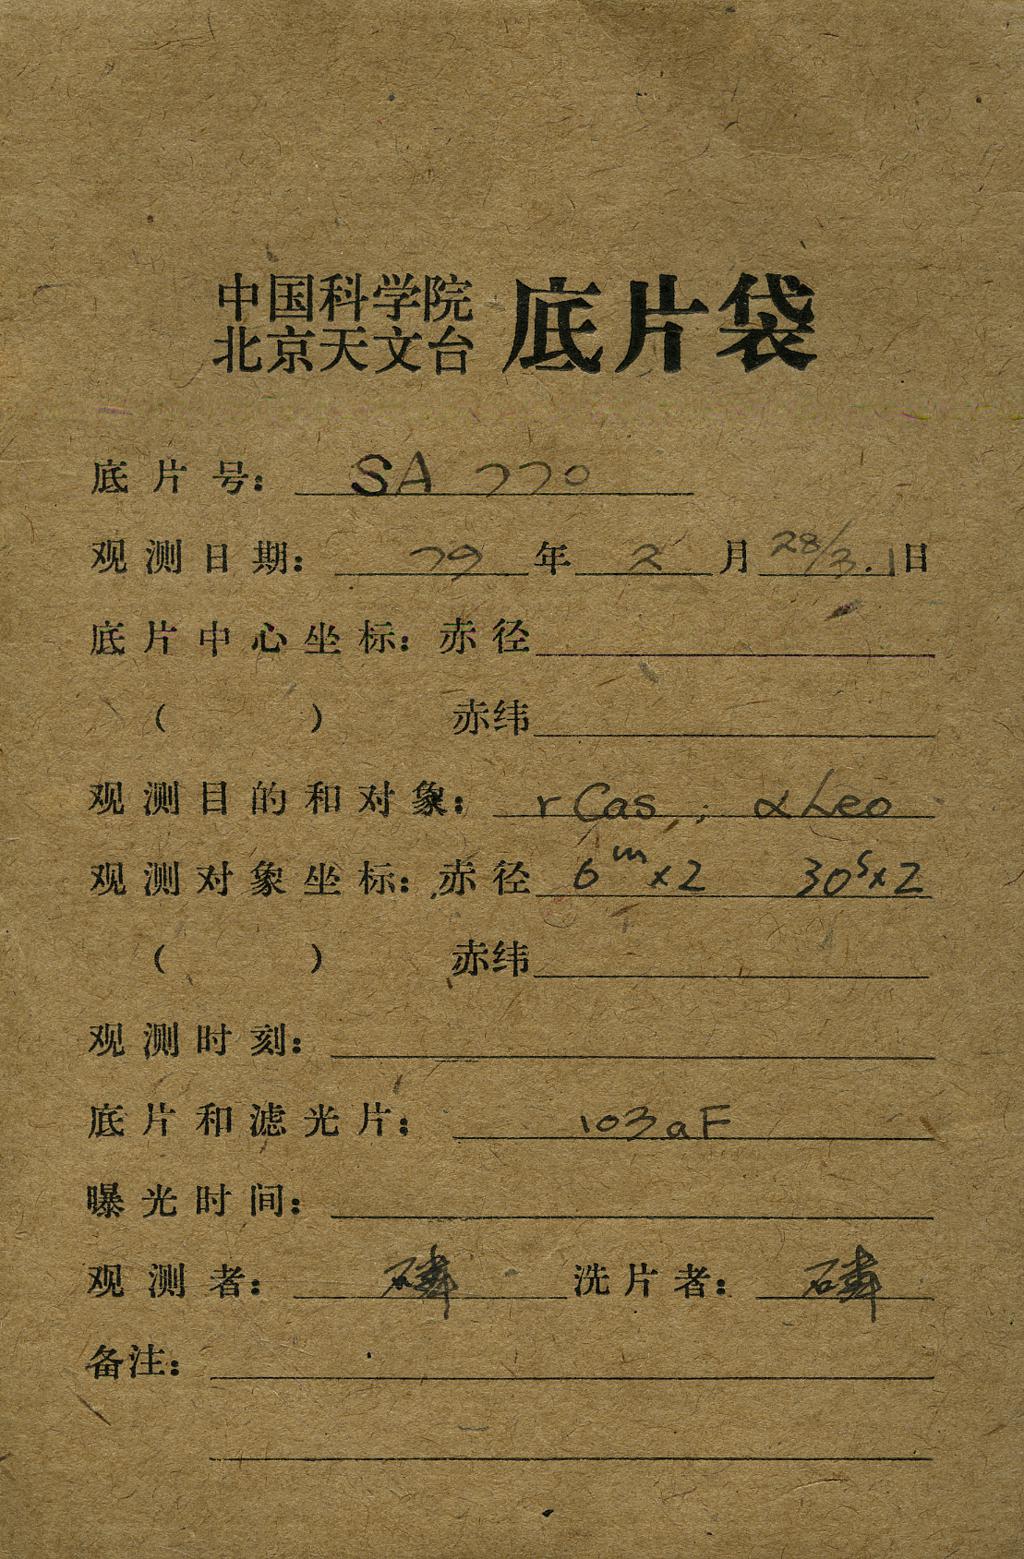 中国科学院
北京天文台 底片袋
底片号: SA 770
观测日期: 79 年 2 月 28/3.1 日
底片中心坐标: 赤径
( ) 赤纬
观测目的和对象: r Cas, ; α Leo
观测对象坐标: 赤径 6ᵐ×2 30ˢ×2
( ) 赤纬
观测时刻:
底片和滤光片: 103aF
曝光时间:
观测者: 磷 洗片者: 磷
备注: